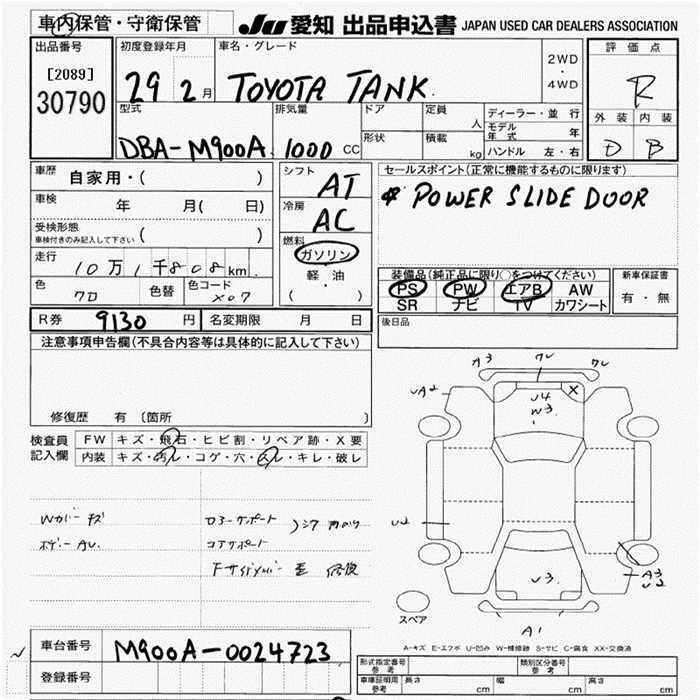 車内保管・守衛保管 JU 愛知 出品申込書 JAPAN USED CAR DEALERS ASSOCIATION
出品番号 初度登録年月 車名・グレード 評価点
[2089] 29 2月 TOYOTA TANK. 2WD・4WD R
30790
型式 排気量 ドア 定員 人 ディーラー・並行 外装 内装
DBA-M900A 1000 CC 形状 積載 kg モデル年式 年 D B
ハンドル 左・右
車歴 自家用・( ) シフト AT セールスポイント(正常に機能するものに限ります)
POWER SLIDE DOOR
車検 年 月( 日) 冷房 AC
受検形態 ( )
車検付きのみ記入して下さい
燃料 ガソリン
走行 10万1千808km 軽・油 装備品(純正品に限り○をつけてください) 新車保証書
( ) PS PW エアB AW 有・無
色 クロ 色替 色コード X07 SR ナビ TV カワシート
R券 9130 円 名変期限 月 日 後日品
注意事項申告欄(不具合内容等は具体的に記入して下さい)
修復歴 有 (箇所 )
検査員 FW キズ・飛石・ヒビ割・リペア跡・X要
記入欄 内装 キズ・汚レ・コゲ・穴・スレ・キレ・破レ
A3
UA2 U4 X
W3
Wカバー キズ
U2
U3
A3
U2
スペア A1
A-キズ E-エクボ U-凹み W-補修跡 S-サビ C-腐食 XX-交換済
車台番号 M900A-0024723
登録番号
形式指定番号 参考 類別区分番号 参考
車庫証明用 参考 長さ cm 幅 cm 高さ cm